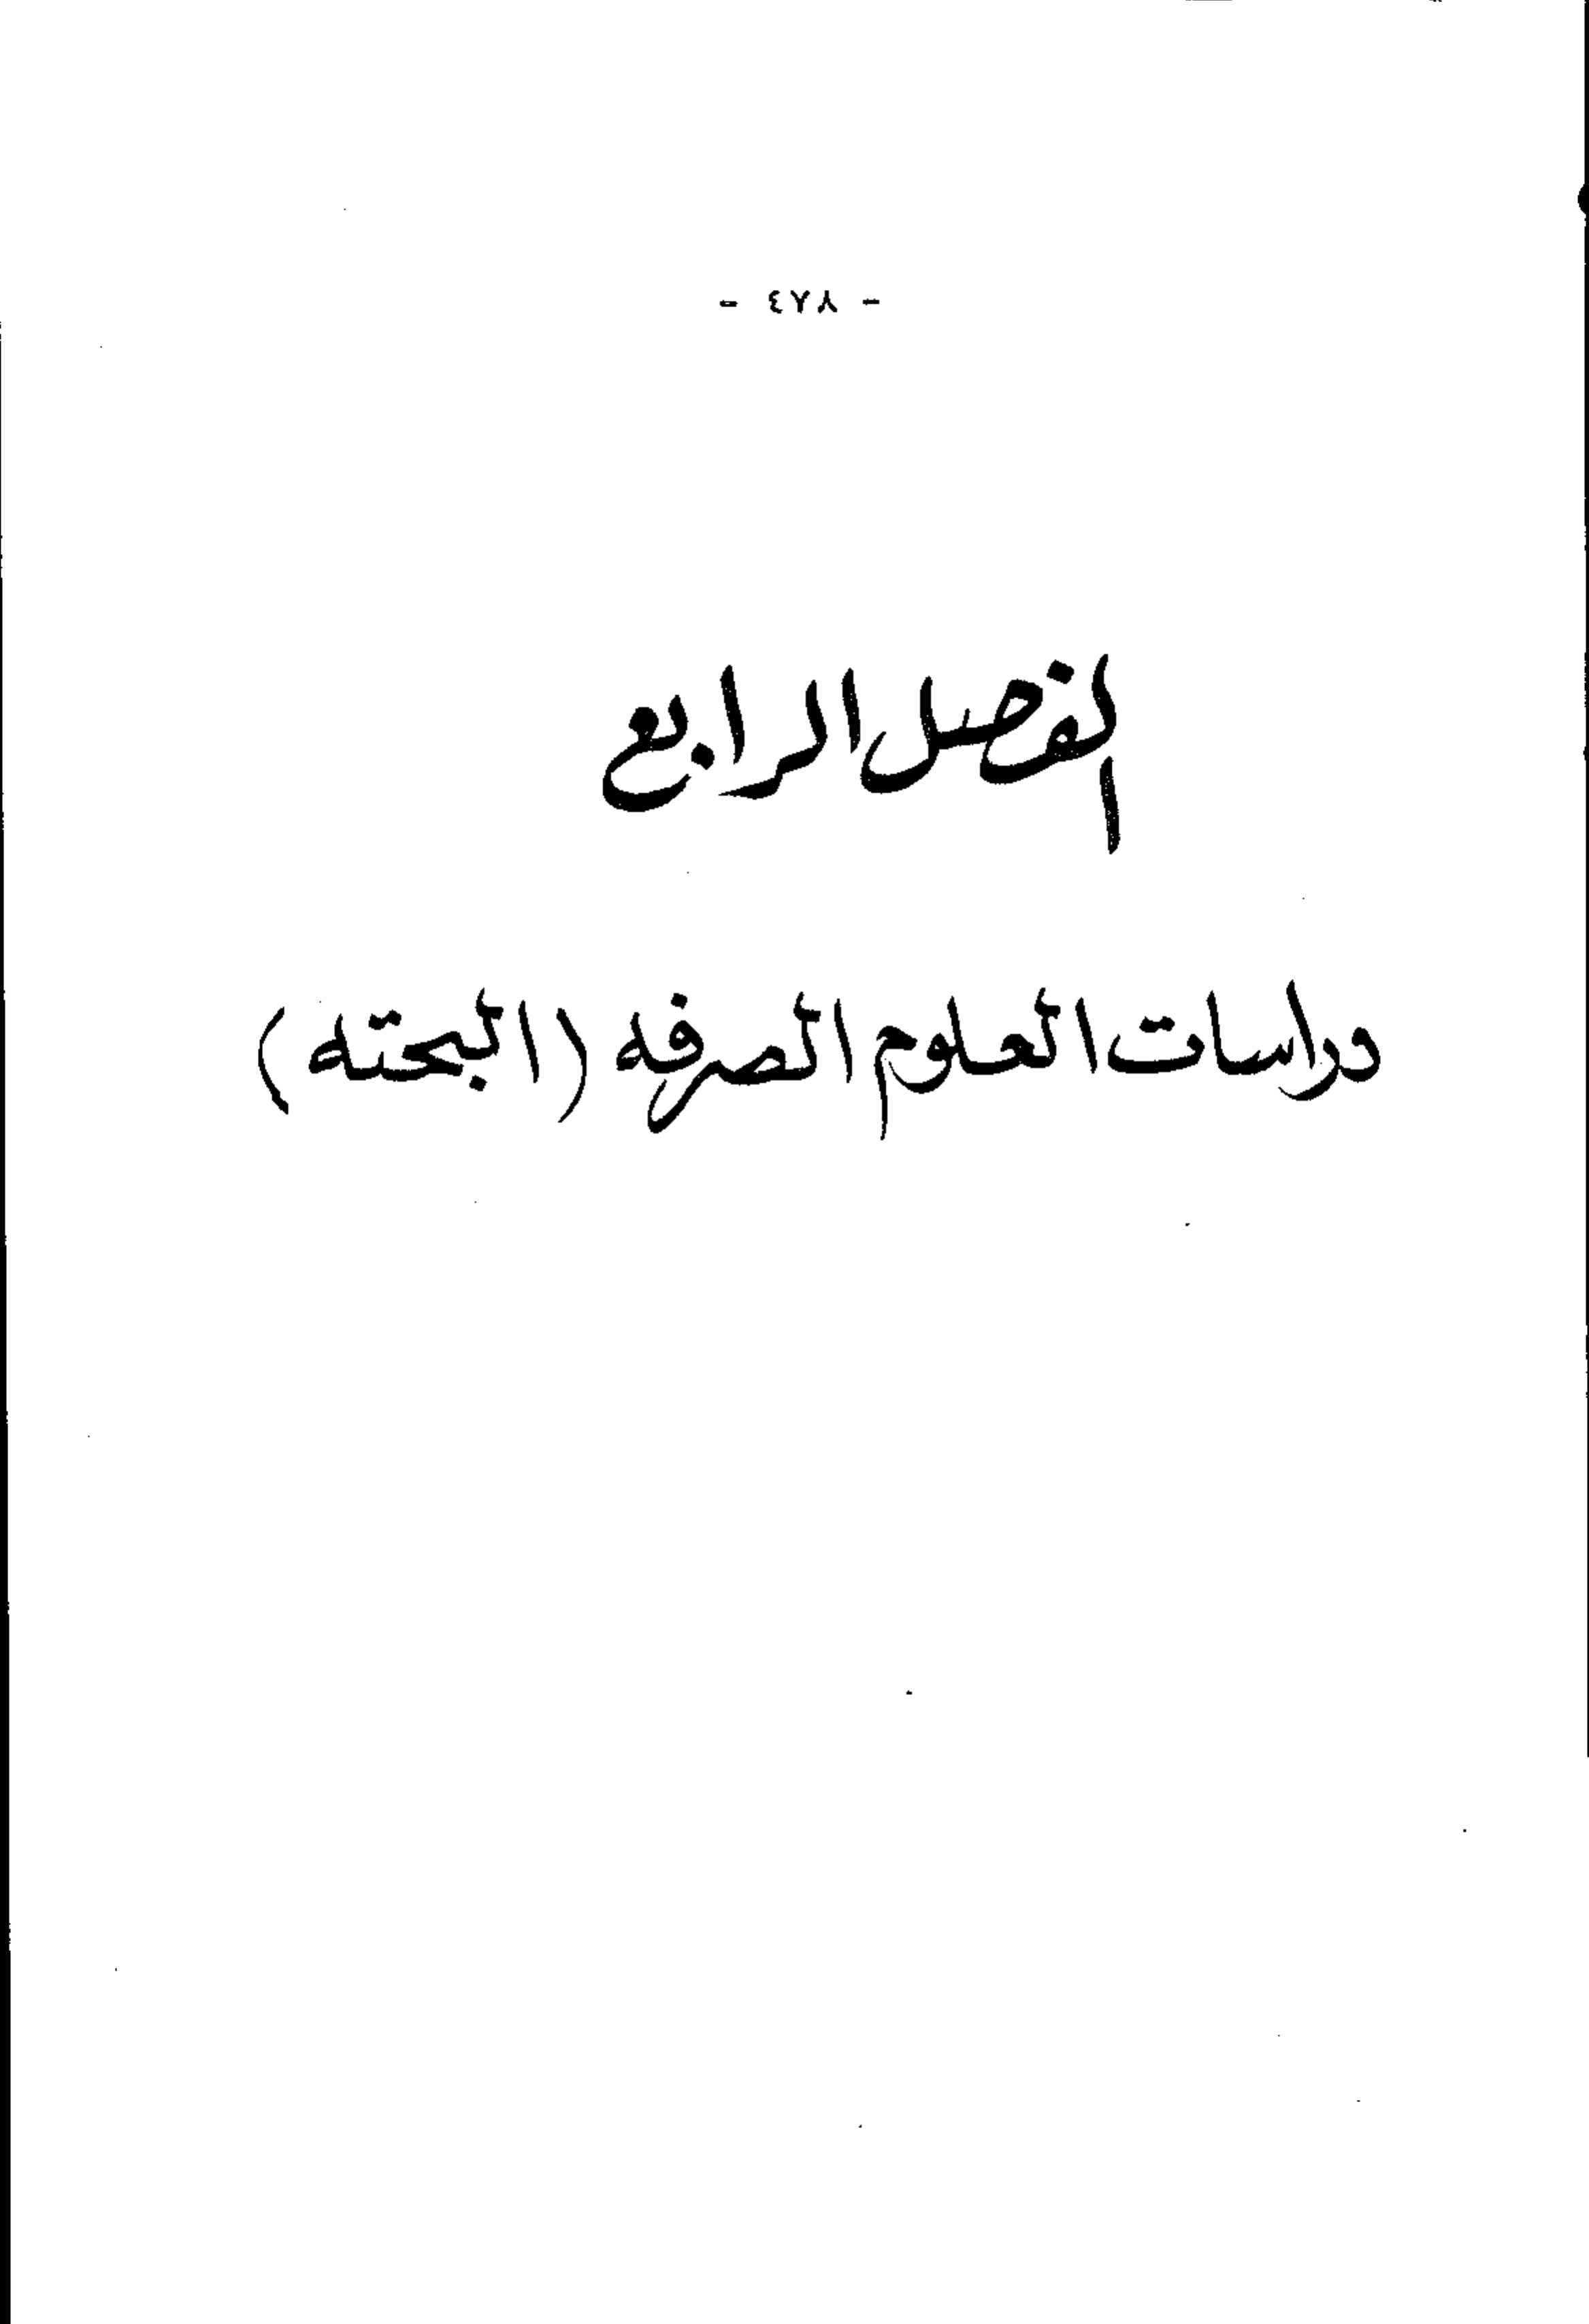 - ٤٧٨ -
الفصل الرابع
دراسات العلوم الصرفه (البحته)